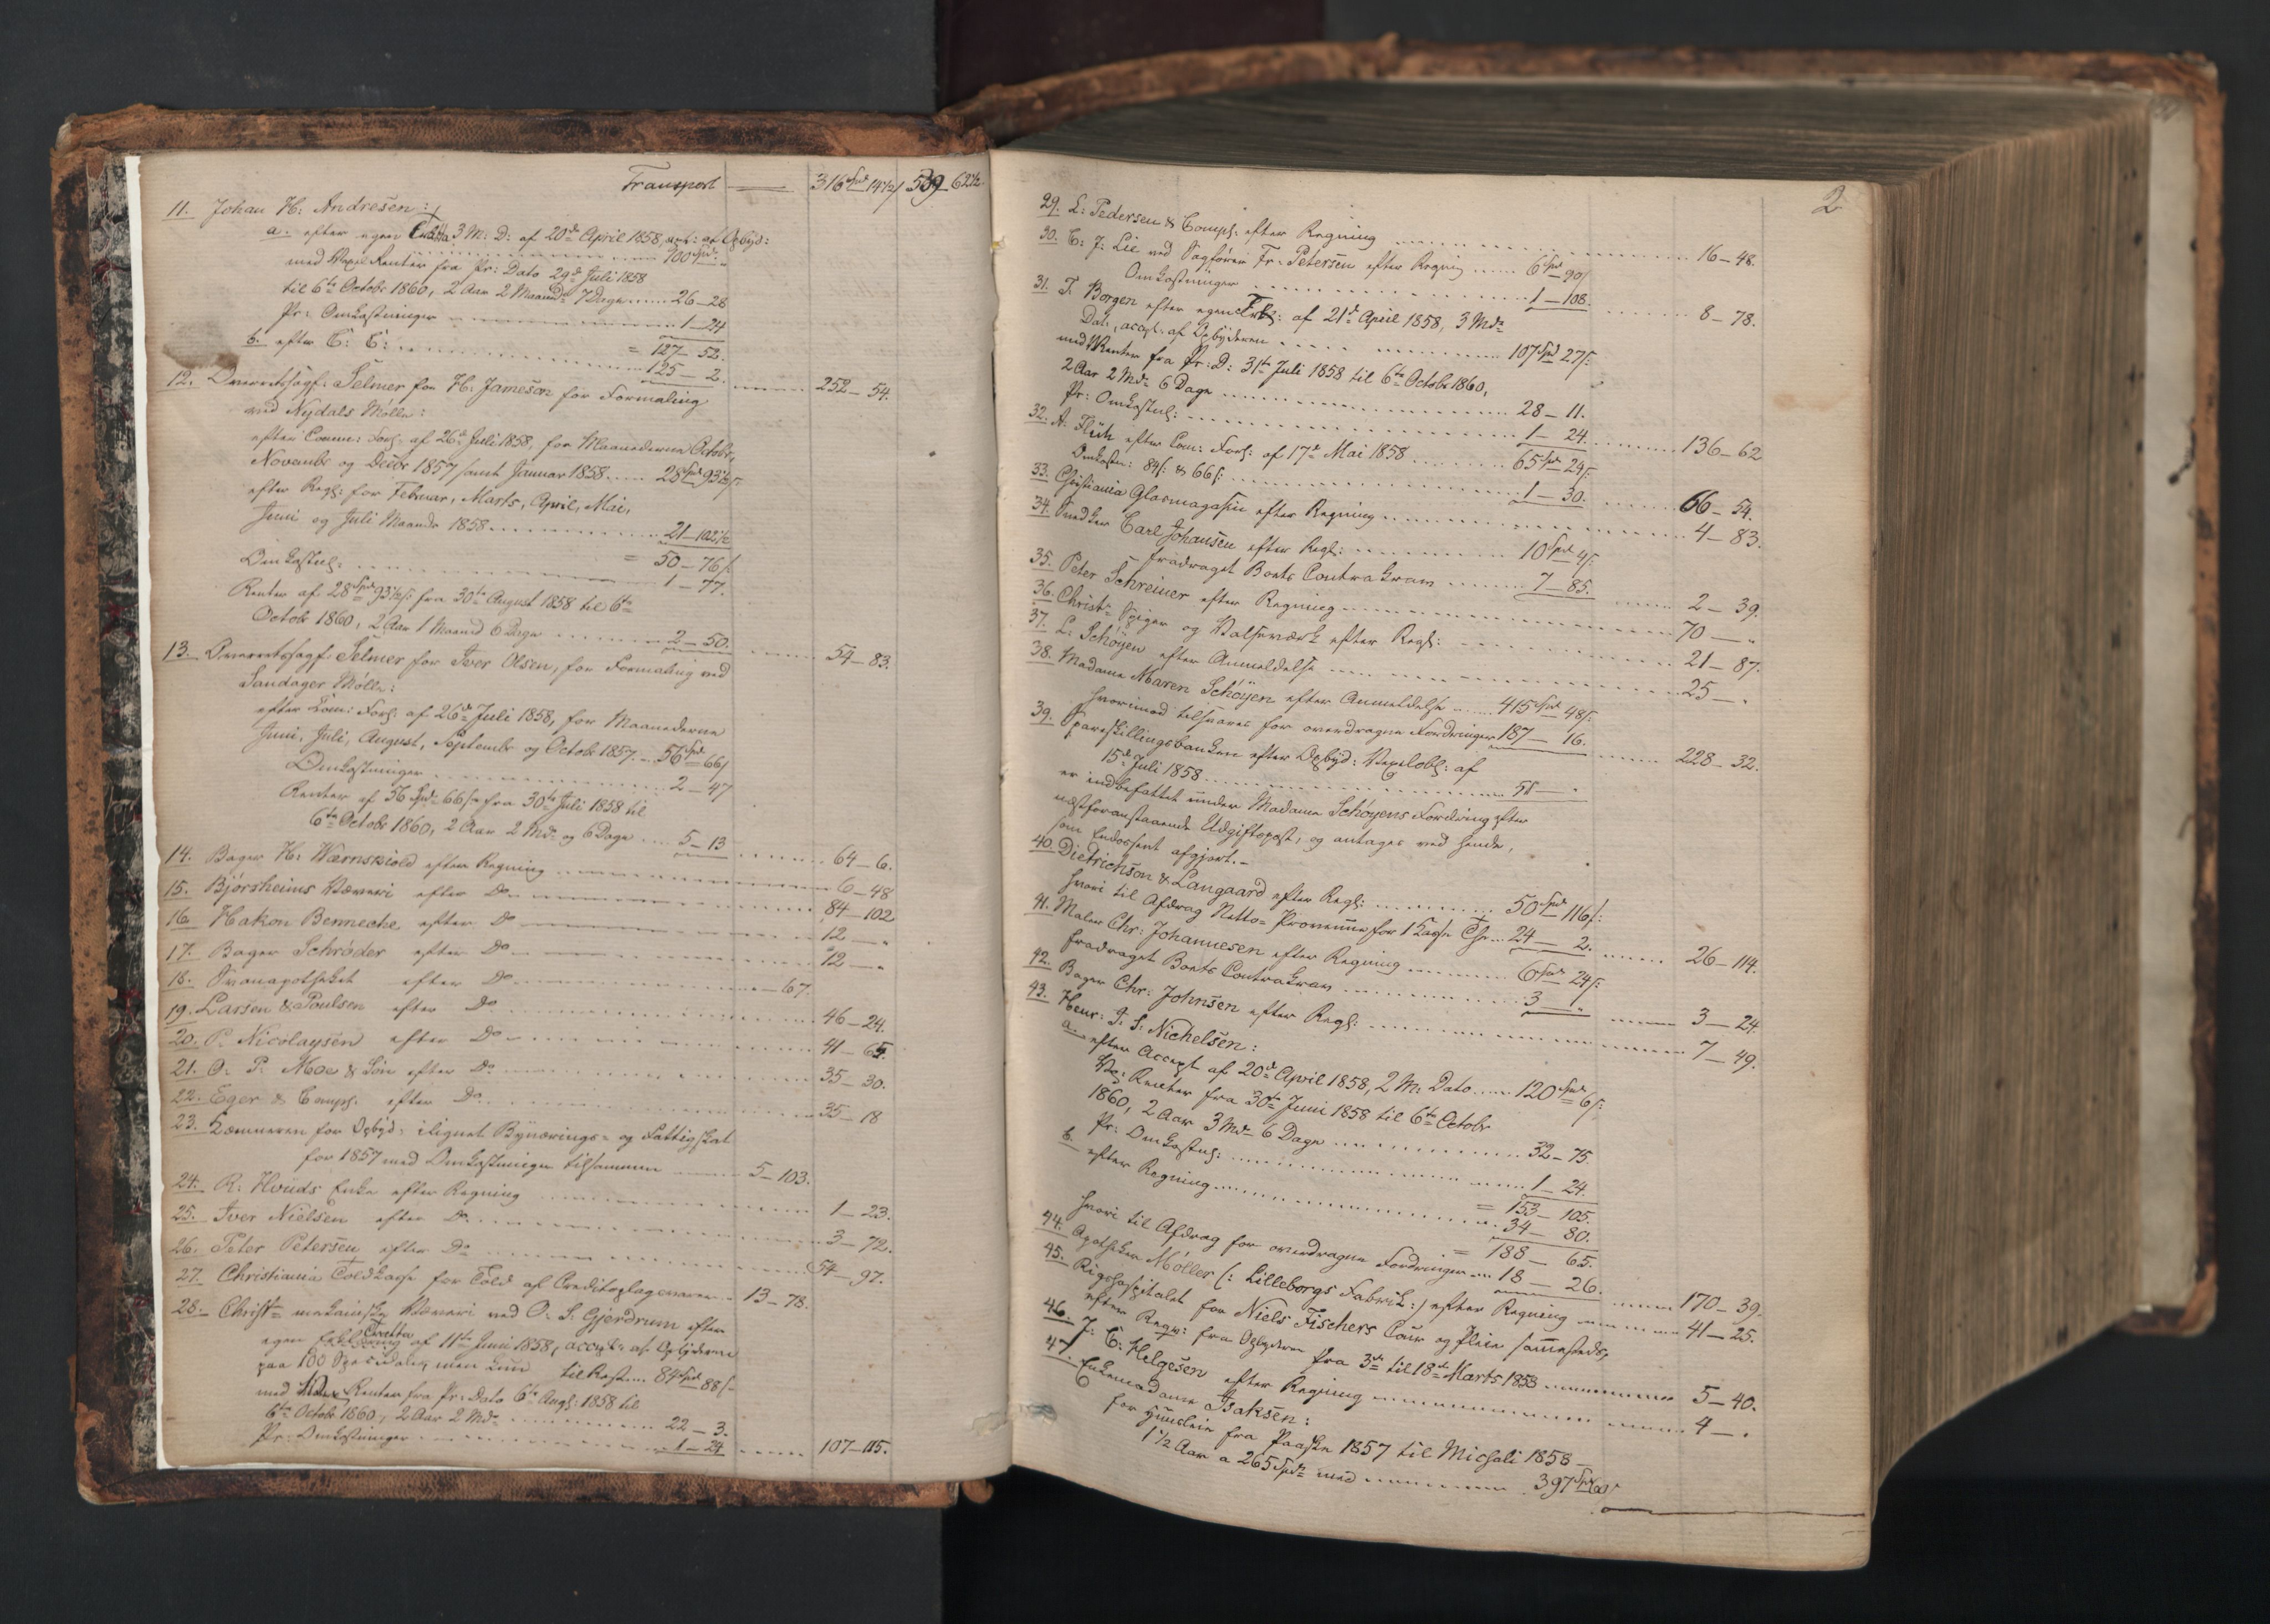 Transport 316 Spd 14½ 539 62½
11. Johan H: Andresen:
a. efter egen Tratta 3 M: D: af 20de April 1858, acc: af Opbyd:
100 Spd: „
med Vexel Renter fra Pr: Dato 29de Juli 1858
til 6te Octobr 1860, 2 Aar 2 Maand 7 Dage 26–28
Pr: Omkostninger 1–24
= 127–52.
b. efter C: C: 125–2. 252–54.
12. Overretssagf. Selmer for H: Jameson for Formaling
ved Nydals Mølle:
efter Comm: Forl: af 26de Juli 1858, for Maanederne Octobr,
Novembr og Decbr 1857 samt Januar 1858 28 Spd 93½ s:
efter Regl: for Februar, Marts, April, Mai,
Juni og Juli Maaneder 1858 21–102½
= 50–76 s:
Omkostng: 1–77.
Renter af 28 Spd 93½ s: fra 30te August 1858 til 6te
Octobr 1860, 2 Aar 1 Maaned 6 Dage 2–50. 54–83.
13. Overretssagf. Selmer for Iver Olsen, for Formaling ved
Sandager Mølle:
efter Com: Forl: af 26de Juli 1858, for Maanederne
Juni, Juli, August, Septembr og Octobr 1857. 56 Spd 66 s
Omkostninger 2–47
Renter af 56 Spd 66 s: fra 30te Juli 1858 til
6te Octobr 1860, 2 Aar 2 Mdr og 6 Dage 5–13 64–6.
14. Bager H: Wærnskiold efter Regning 6–48
15. Bjørsheims Væveri efter Do 84–102
16. Hakon Bennecke efter Do 12 — „
17. Bager Schrøder efter Do 12 — „
18. Svaneapotheket efter Do – 67.
19. Larsen & Poulsen efter Do 46–24.
20. P. Nicolaysen efter Do 41–65.
21. O. P. Moe & Søn efter Do 35–30.
22. Eger & Comp. efter Do 35–18
23. Kæmneren for Opbyd: ilignet Bynærings- og Fattigskat
for 1857 med Omkostninger tilsammen 5–103.
24. R. Hviids Enke efter Regning 1–23.
25. Iver Nielsen efter Do 3–72.
26. Peter Petersen efter Do 54–97.
27. Christiania Toldkasse for Told af Creditoplagsvarer 13–78.
28. Christ: mekaniske Væveri ved O. S. Gjerdrum efter
egen Tratta af 11te Juni 1858, accept: af Opbyderen
paa 100 Speciedaler, men kun til Rest 84 Spd 88 s
med Renter fra Pr: Dato 6te Augl: 1858 til
6te Octobr 1860, 2 Aar 2 Mdr 22–3.
Pr: Omkostninger 1–24 107–115.
2
29. L: Pedersen & Comp: efter Regning 16–48.
30. C: J: Lie ved Sagfører Fr: Petersen efter Regning 6 Spd 90 s
Omkostninger 1–108. 8–78.
31. T. Borgen efter egen af 21de April 1858, 3 Mdr
Dat:, accpt: af Opbyderen 107 Spd 27 s:
med VRenter fra Pr: D: 31te Juli 1858 til 6te Octobr 1860,
2 Aar 2 Mdr 6 Dage 28–11.
Pr: Omkostng: 1–24. 136–62
32. A: efter Com: Forl: af 17de Mai 1858 65 Spd 24 s:
Omkostn: 84 s: & 66 s: 1–30. 66–54.
33. Christiania Glasmagasin efter Regning 4–83.
34. Snedker Carl Johansen efter Regl: 10 Spd 4 s:
fradraget Boets Contrakrav 7–85. 2–39.
35. Peter Schreiner efter Regning 70 — „
36. Christ: Spiger og Valseværk efter Regl: 21–87.
37. L: Schøyen efter Anmeldelse 25 — „
38. Madame Maren Schøyen efter Anmeldelse 415 Spd 48 s:
hvorimod tilsvares for overdragne Fordringer 187–16. 228–32.
39. Spareskillingsbanken efter Opbyd: Vexelobl: af
15de Juli 1858 55 — „
er indbefattet under Madame Schøyens Fordring efter
næstforanstaaende Udgiftspost, og antages ved hende,
som Endossent afgjort. –
40. Dietrichson & Langaard efter Regl: 50 Spd 116 s:
hvori til Afdrag Netto-Provenue for 1 Kasse The 24–2. 26–114.
41. Maler Chr: Johannesen efter Regning 6 Spd 24 s:
fradraget Boets Contrakrav 3 — „ 3–24
42. Bager Chr: Johnsen efter Regl: 7–49.
43. Henr: J: S: Nichelsen:
a. efter Accept af 20de April 1858, 2 M: Dato 120 Spd 6 s:
Vx: Renter fra 30te Juni 1858 til 6te Octobr
1860, 2 Aar 3 Mdr 6 Dage 32–75.
Pr: Omkostng: 1–24.
= 153–105.
b. efter Regning 34–80.
= 188–65.
hvori til Afdrag for overdragne Fordringer 18–26. 170–39.
44. Apotheker Møller (: Lilleborgs Fabrik:) efter Regning 41–25.
45. Rigshospitalet for Niels Fischers Cuur og Pleie sammesteds,
efter Regn: fra Opbyderen fra 3de til 18de Marts 1858 5–40.
46. J: C: Helgesen efter Regning 4 — „
47. Enkemadame Isaksen:
for Huusleie fra Paaske 1857 til Michali 1858 –
1½ Aar a 265 Spdr med 397 Spd 60 s